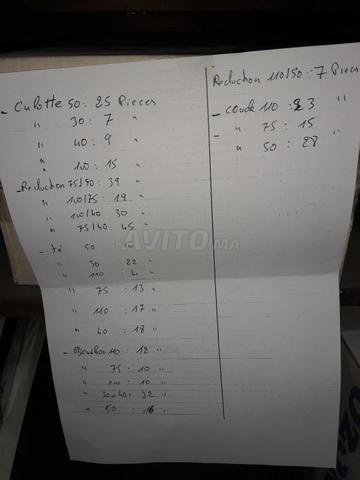 - Culotte 50 : 25 Pieces
" 30 : 7 "
" 40 : 9 "
" 100 : 15 "
- Reduction 75/90 : 39 "
" 100/75 : 19 "
" 100/40 30 "
" 75/40 : 45 "
- té 50 :
" 30 : 22 "
" 110 : "
" 75 : 13 "
" 110 : 17 "
" 40 : 18 "
- 110 : 12 "
" 75 : 10 "
" 100 : 10 "
" 30 40 : 32 "
" 50 : 16 "
Reduction 110/50 : 7 Piece
- coude 110 : 23 "
- " 75 : 15
" 50 : 28
AVITO.MA